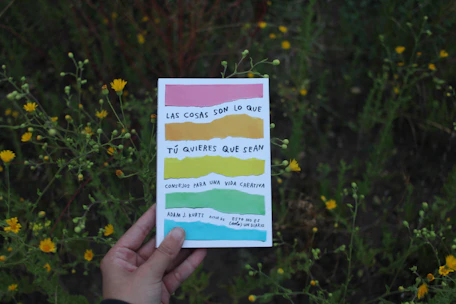 LAS COSAS SON LO QUE
TÚ QUIERES QUE SEAN
CONSEJOS PARA UNA VIDA CREATIVA
ADAM J. KURTZ AUTOR DE ESTO NO ES
UN DIARIO